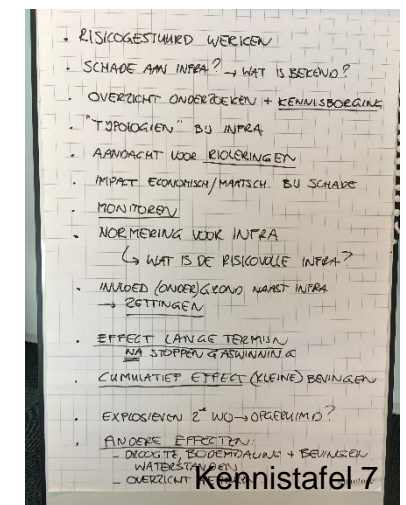 • RISICOGESTUURD WERKEN
• SCHADE AAN INFRA? → WAT IS BEKEND?
• OVERZICHT ONDERZOEKEN + KENNISBORGING
• "TYPOLOGIEN" BIJ INFRA
• AANDACHT VOOR RIOLERINGEN
• IMPACT ECONOMISCH/MAATSCH. BIJ SCHADE
• MONITOREN
• NORMERING VOOR INFRA
↳ WAT IS DE RISICOVOLLE INFRA?
• INVLOED (ONDER)GROND NAAST INFRA
→ ZETTINGEN
• EFFECT LANGE TERMIJN
NA STOPPEN GASWINNING
• CUMMULATIEF EFFECT (KLEINE) BEVINGEN
• EXPLOSIEVEN 2e WO → OPGERUIMD?
• ANDERE EFFECTEN:
- DROOGTE, BODEMDALING + BEVINGEN
WATERSTANDEN
- OVERZICHT
Kennistafel 7